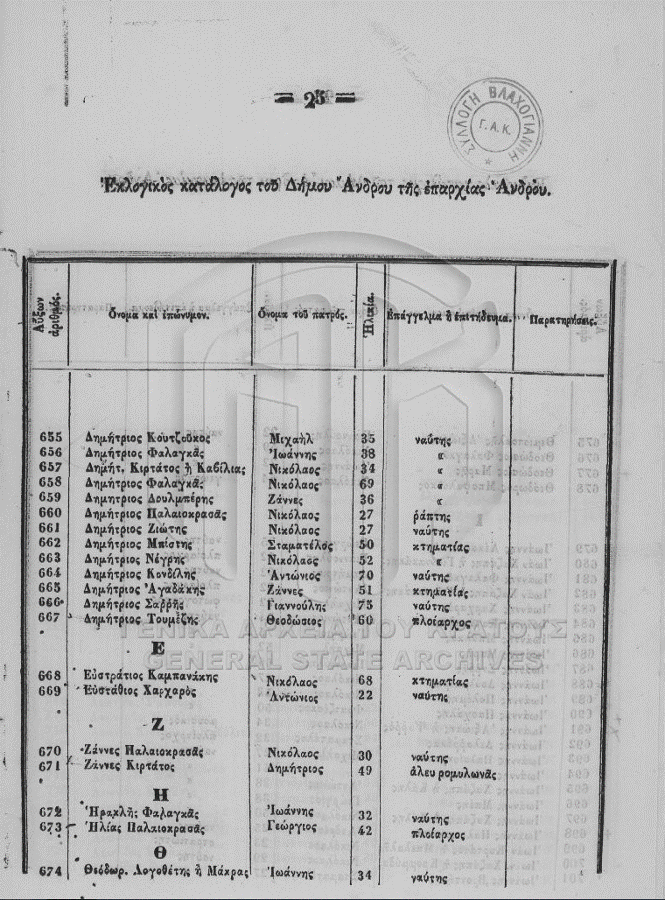 = 25 =
ΣΥΛΛΟΓΗ ΒΛΑΧΟΓΙΑΝΝΗ
Γ.Α.Κ.
Ἐκλογικὸς κατάλογος τοῦ Δήμου Ἄνδρου τῆς ἐπαρχίας Ἄνδρου.
Αὔξων ἀριθμός. Ὄνομα καὶ ἐπώνυμον. Ὄνομα τοῦ πατρός. Ἡλικία. Ἐπάγγελμα ἢ ἐπιτήδευμα. Παρατηρήσεις.
655 Δημήτριος Κουτζοῦκος Μιχαὴλ 35 ναύτης
656 Δημήτριος Φαλαγκᾶς Ἰωάννης 38 «
657 Δημήτ. Κιρτάτος ἢ Καβίλιας Νικόλαος 34 «
658 Δημήτριος Φαλαγκᾶς Νικόλαος 69 «
659 Δημήτριος Δουλμπέρης Ζάννες 36 «
660 Δημήτριος Παλαιοκρασᾶς Νικόλαος 27 ῥάπτης
661 Δημήτριος Ζιώτης Νικόλαος 27 ναύτης
662 Δημήτριος Μπίστης Σταματέλος 50 κτηματίας
663 Δημήτριος Νέγρης Νικόλαος 52 «
664 Δημήτριος Κονδίλης Ἀντώνιος 70 ναύτης
665 Δημήτριος Ἀγαδάκης Ζάννες 51 κτηματίας
666 Δημήτριος Σαρρῆς Γιαννούλης 75 ναύτης
667 Δημήτριος Τουμέζης Θεοδώσιος 60 πλοίαρχος
ΓΕΝΙΚΑ ΑΡΧΕΙΑ ΤΟΥ ΚΡΑΤΟΥΣ
Ε
GENERAL STATE ARCHIVES
668 Εὐστράτιος Καμπανάκης Νικόλαος 68 κτηματίας
669 Εὐστάθιος Χαρχαρὸς Ἀντώνιος 22 ναύτης
Ζ
670 Ζάννες Παλαιοκρασᾶς Νικόλαος 30 ναύτης
671 Ζάννες Κιρτάτος Δημήτριος 49 ἀλευρομυλωνᾶς
Η
672 Ἡρακλῆς Φαλαγκᾶς Ἰωάννης 32 ναύτης
673 Ἠλίας Παλαιοκρασᾶς Γεώργιος 42 πλοίαρχος
Θ
674 Θεόδωρ. Λογοθέτης ἢ Μάκρας Ἰωάννης 34 ναύτης